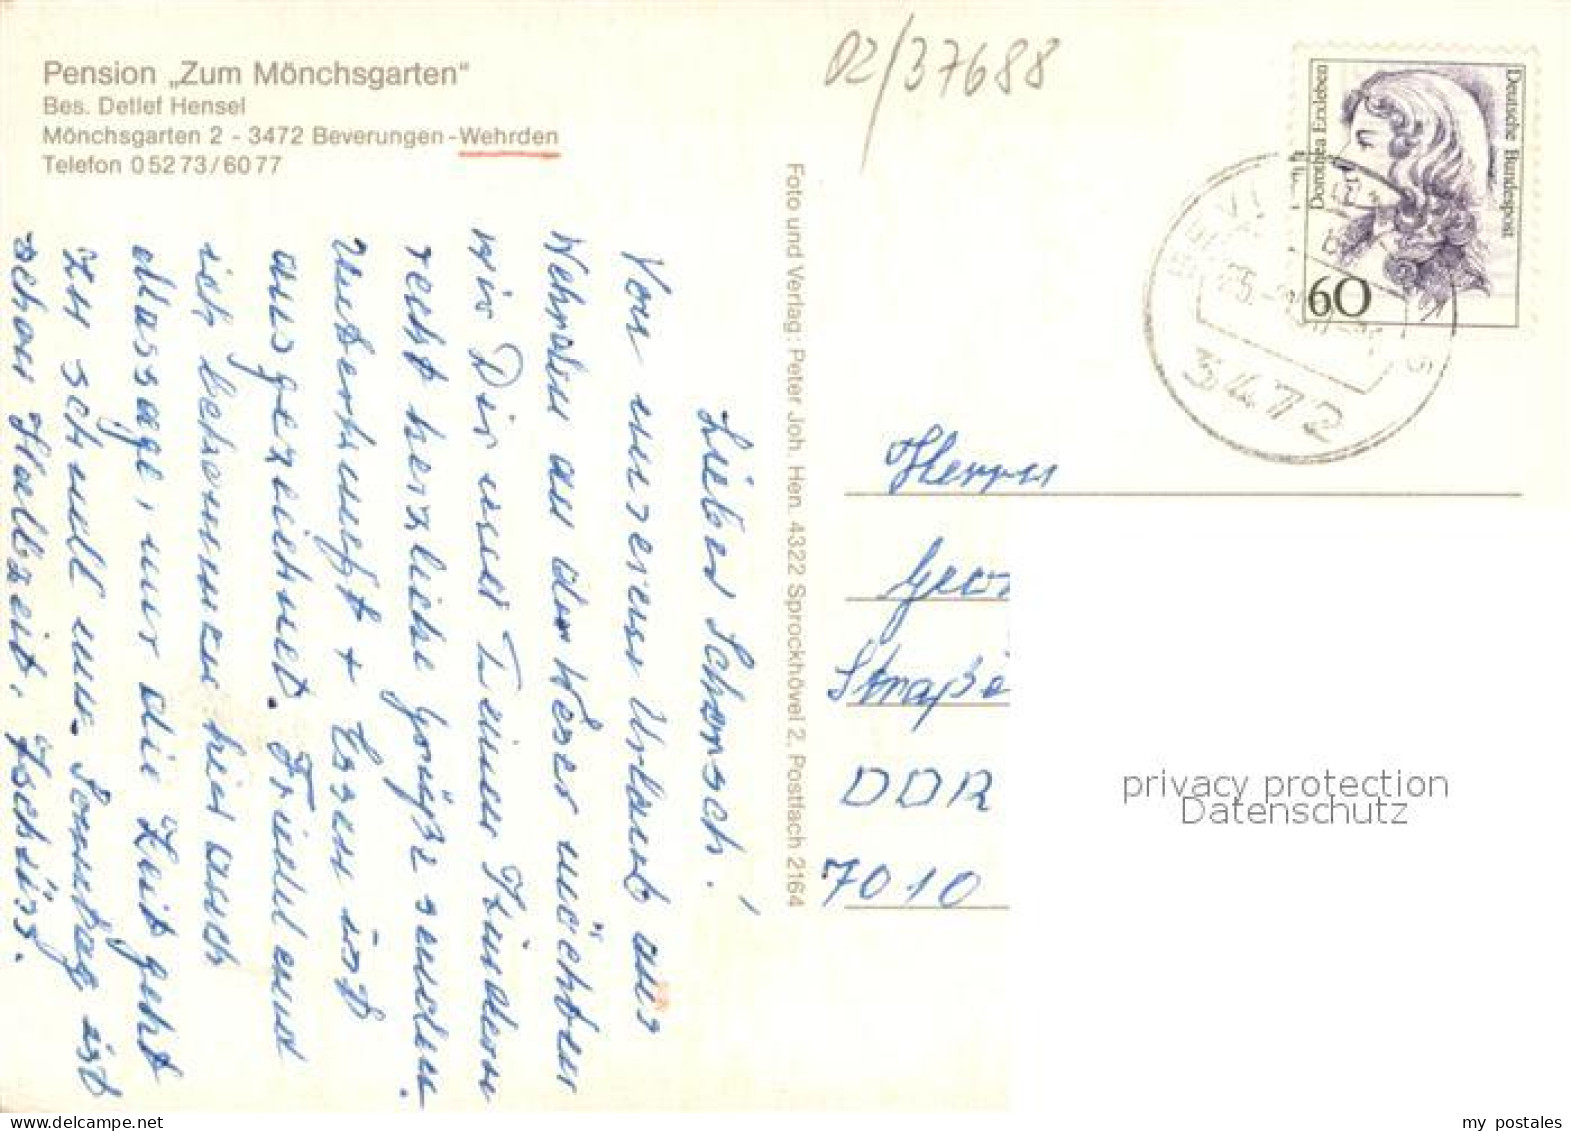 Pension „Zum Mönchsgarten“
Bes. Detlef Hensel
Mönchsgarten 2 - 3472 Beverungen-Wehrden
Telefon 05273/6077
02/37688
Deutsche Bundespost
Dorothea Erxleben
60
3472
Lieber Schorsch!
Von unserem Urlaub aus
Wehrden an der Weser möchten
wir Dir und Deinen Kindern
recht herzliche Grüße senden.
Unterkunft + Essen ist
ausgezeichnet. Friedel und
ich bekommen hier auch
Massage, nur die Zeit geht
zu schnell um. Sonntag ist
schon Halbzeit. Tschüss.
Foto und Verlag: Peter Joh. Hen. 4322 Sprockhövel 2, Postfach 2164
Herrn
Straße
DDR
7010
privacy protection
Datenschutz
my postales